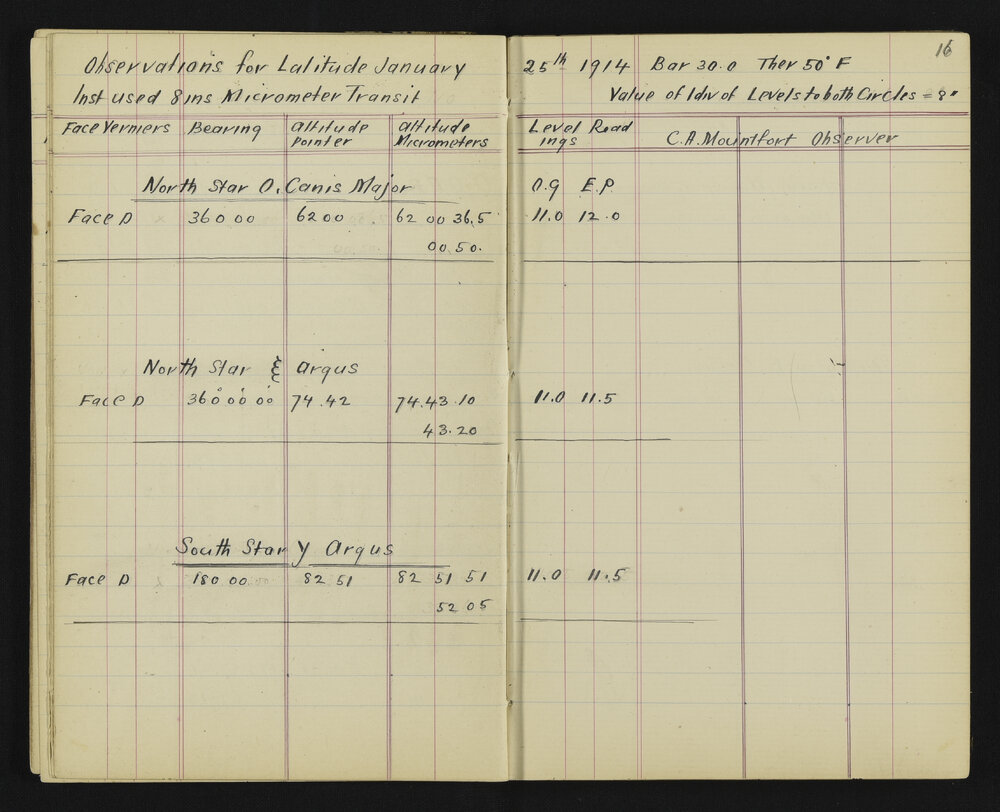 16
Observations for Latitude January 25th 1914 Bar 30.0 Ther 50° F
Inst used 8 ins Micrometer Transit Value of 1 div of Levels to both Circles = 8"
Face Verniers Bearing Altitude Pointer Altitude Micrometers Level Readings C.A. Mountfort Observer
North Star O, Canis Major O.G E.P.
Face D 360 00 62 00 62 00 36.5 11.0 12.0
00 50.
North Star ξ Argus
Face D 360 00 00 74.42 74.43.10 11.0 11.5
43.20
South Star γ Argus
Face D 180 00 82 51 82 51 51 11.0 11.5
52 05